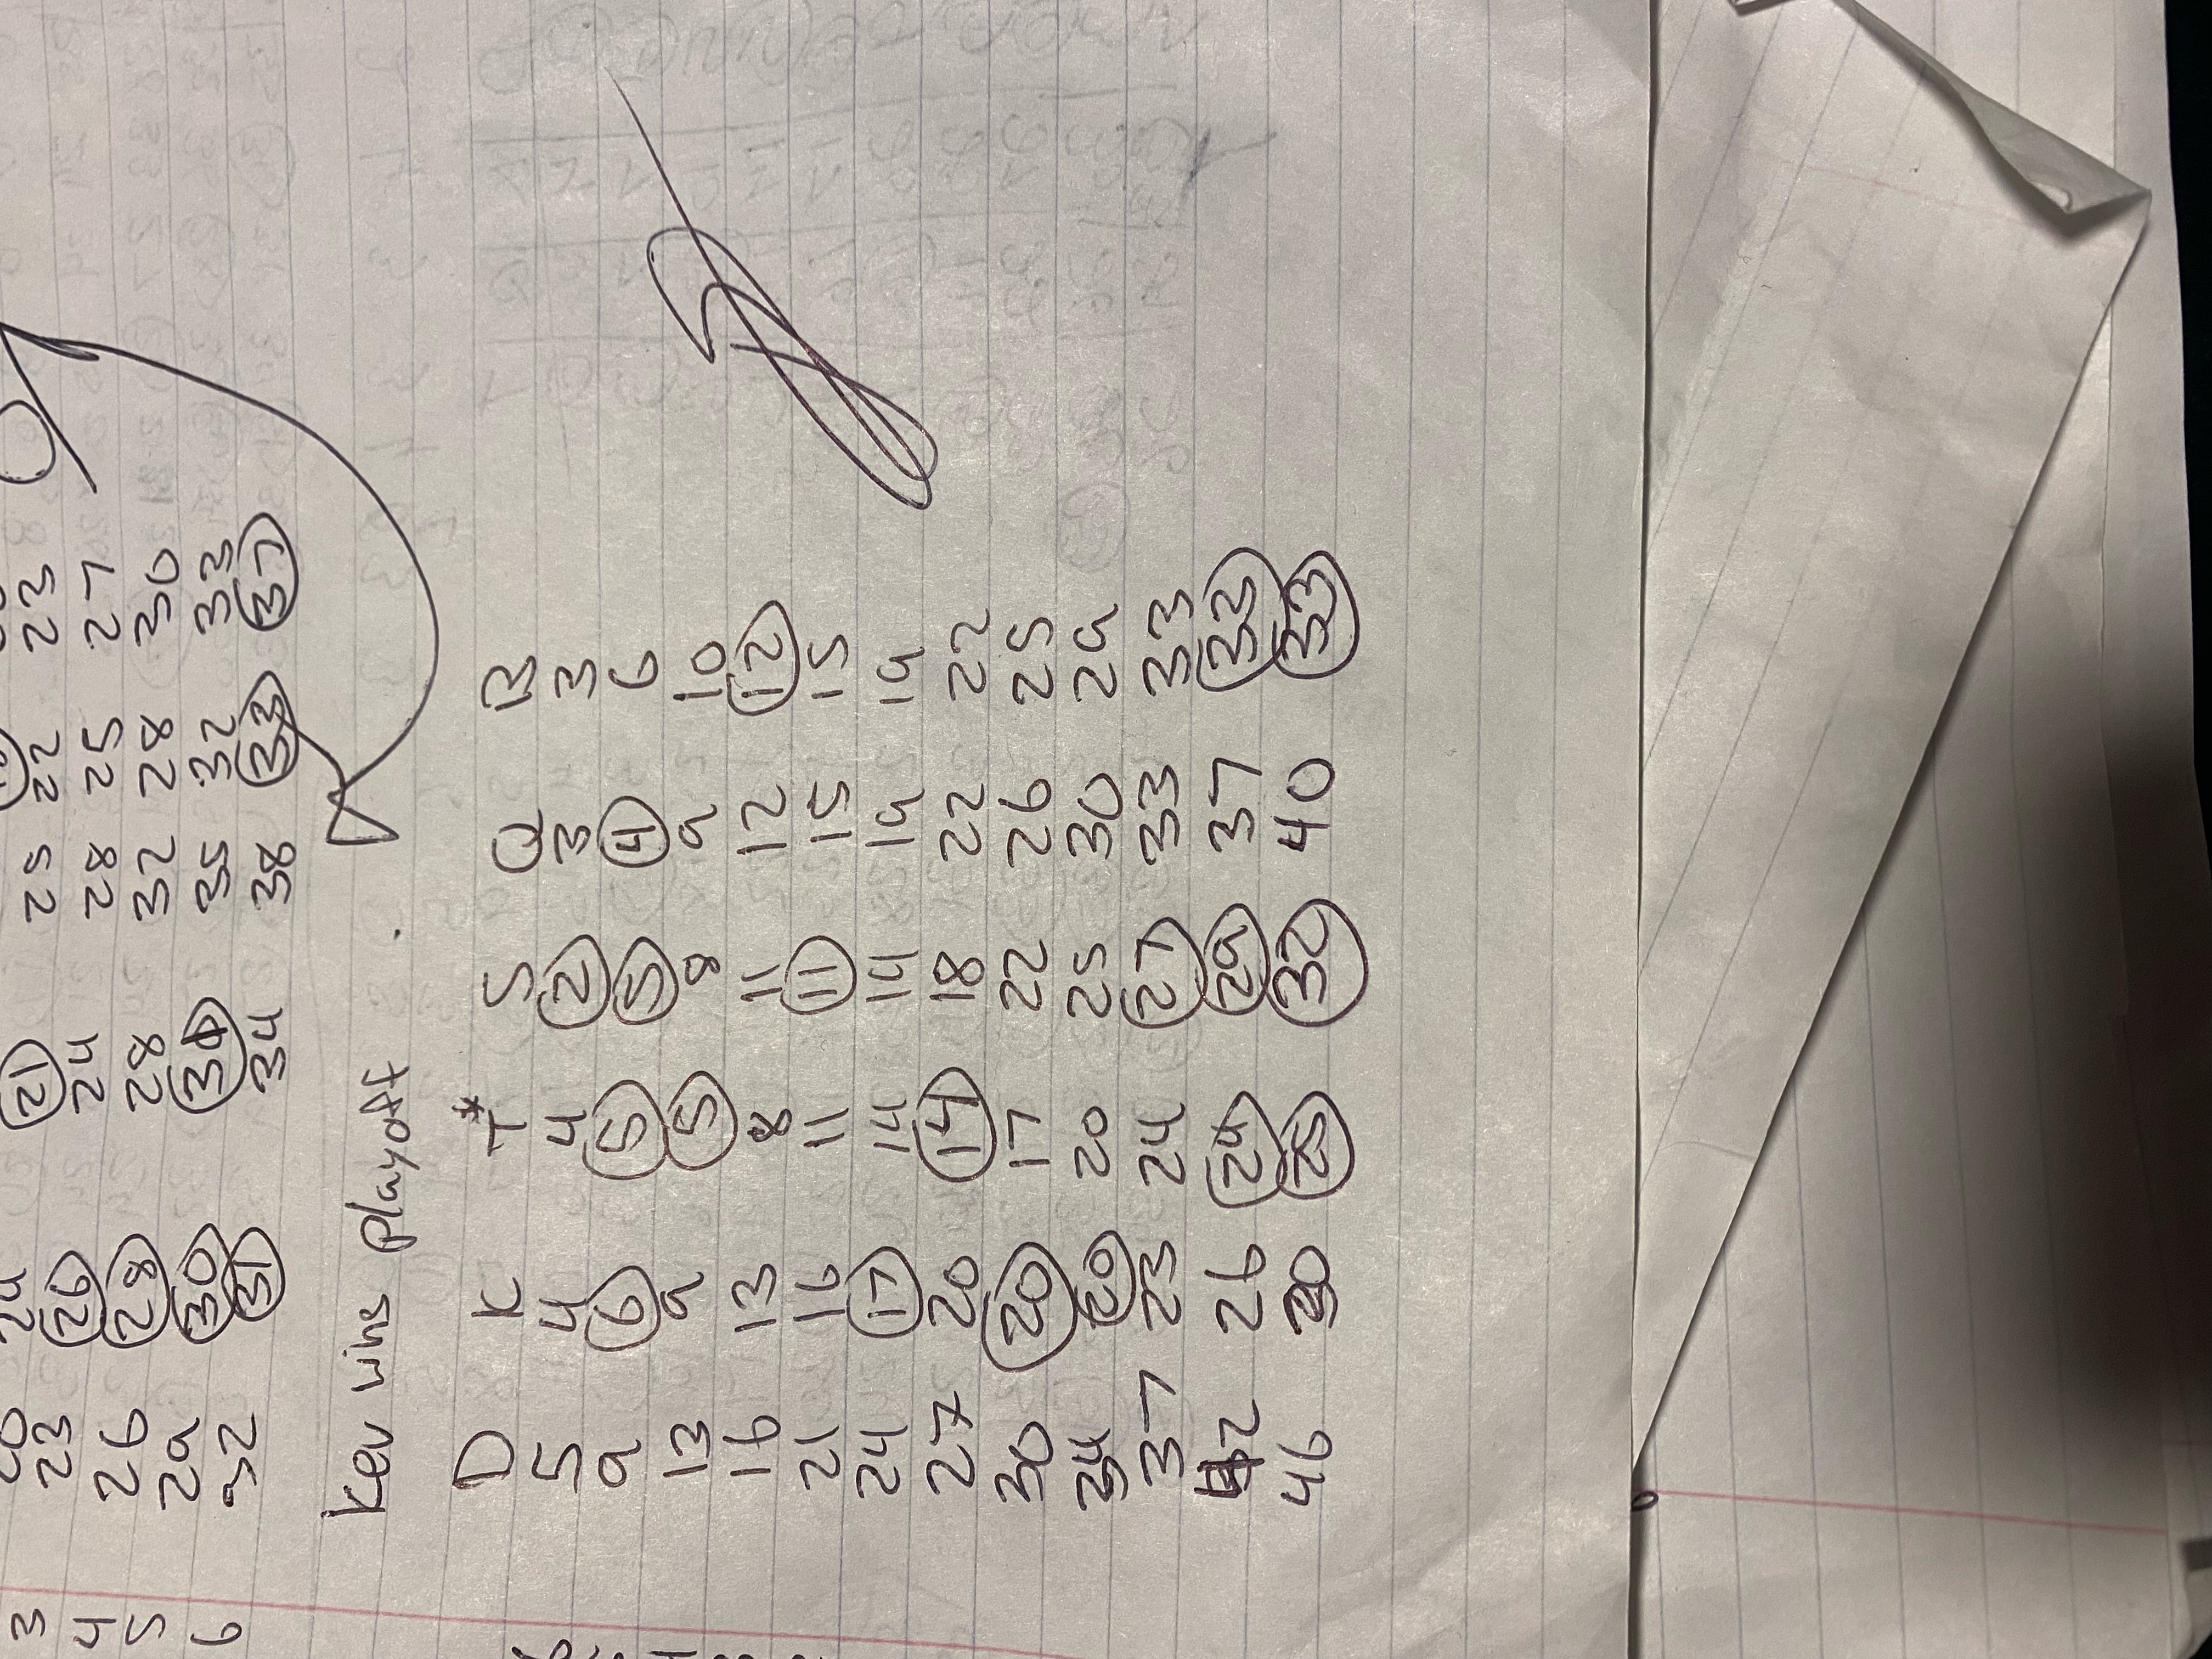 3 20 24 (21) 25 22 23
4 23 (26) 24 28 25 27
5 26 (28) 28 32 28 30
6 29 (30) (31) 35 32 33
32 (31) 34 38 (33) (37)
Kev wins playoff .
D K T* S Q R
5 4 4 (2) 3 3
9 (6) (5) (5) (4) 6
13 9 (5) 8 9 10
16 13 8 11 12 (12)
21 16 11 (11) 15 15
24 (17) 14 14 19 19
27 20 (14) 18 22 22
30 (20) 17 22 26 25
34 (20) 20 25 30 29
37 23 24 (27) 33 33
42 26 (24) (29) 37 (33)
46 30 (25) (32) 40 (33)